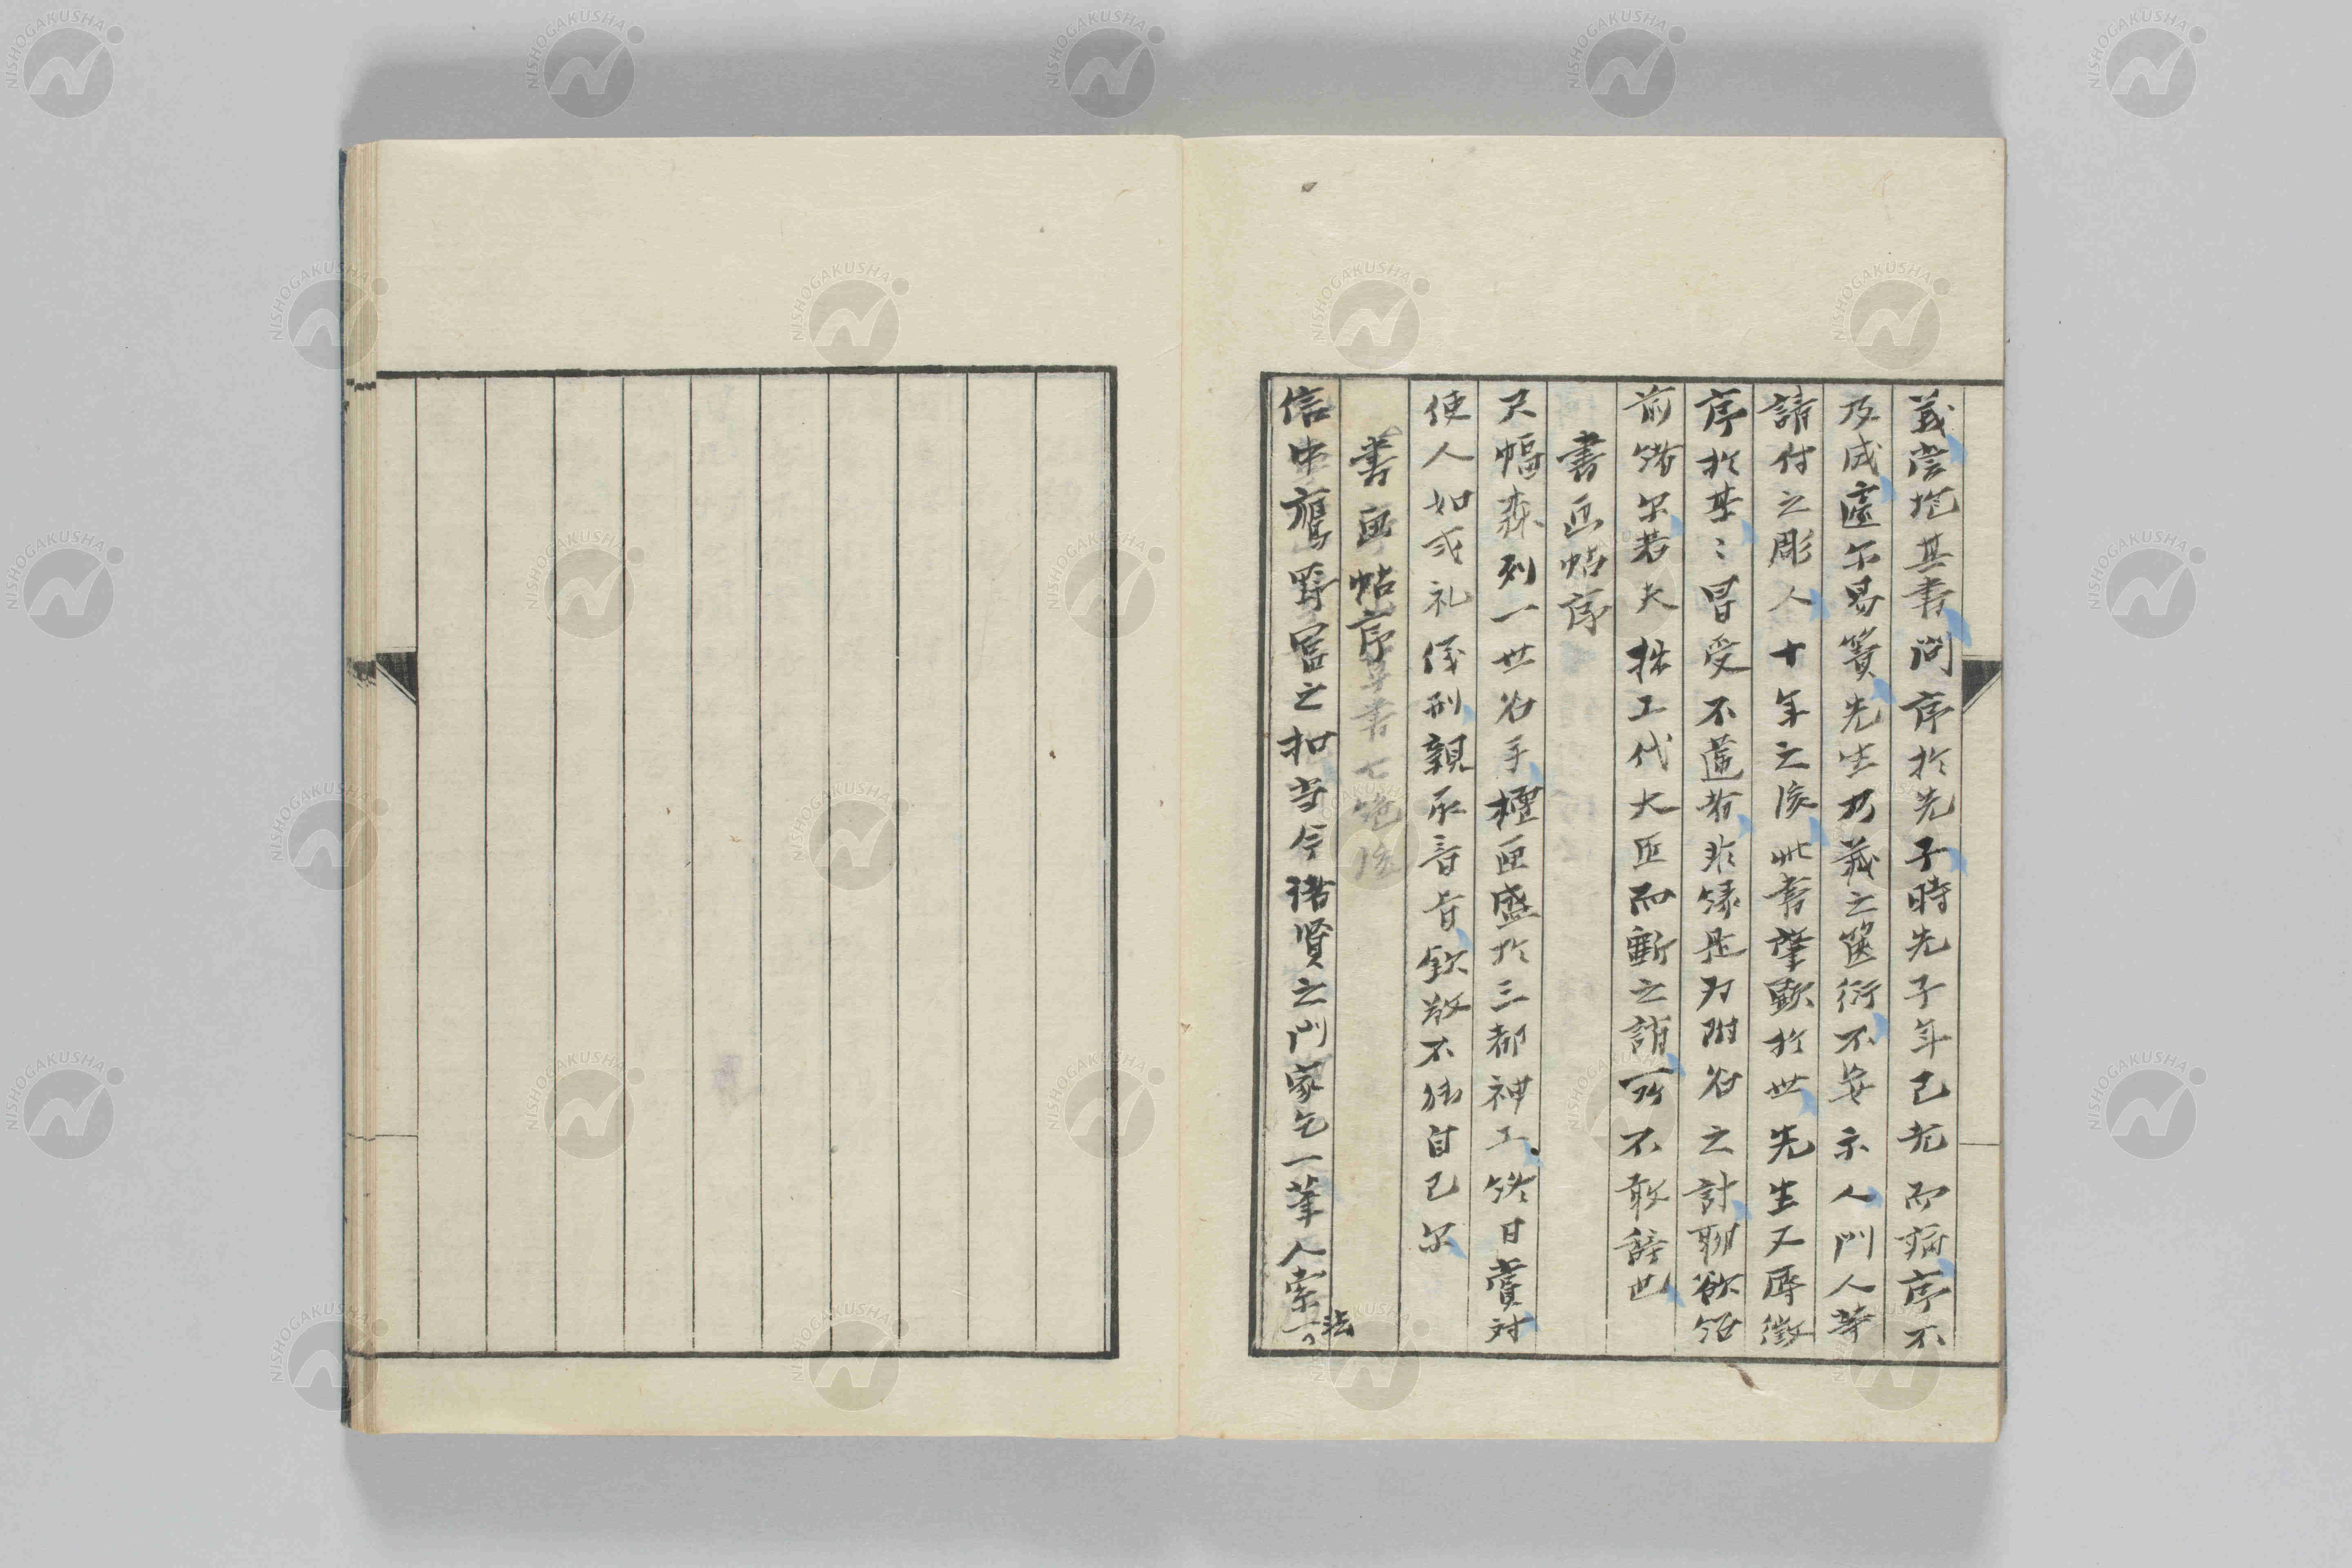 義嘗挖其書問序於先子時先子年已老而病序不
及成遽尓易簀先生乃藏之篋衍不妄示人門人等
請付之彫人十年之後此書肇歐於世先生又辱徴
序於某〻冒受不遑者非縁是為附名之計聊欲紹
前緒尓若夫拙工代大匠而斲之誚所不敢辞也
書画帖序
尺幅森列一世名手櫃匣盛於三都神工終日賞対
使人如或礼儀刑親承音旨欽敬不能自已尓
書画帖序草書七絶後
信中鴈野冨之扣当今諸賢之門家乞一筆人索一
法
NISHOGAKUSHA